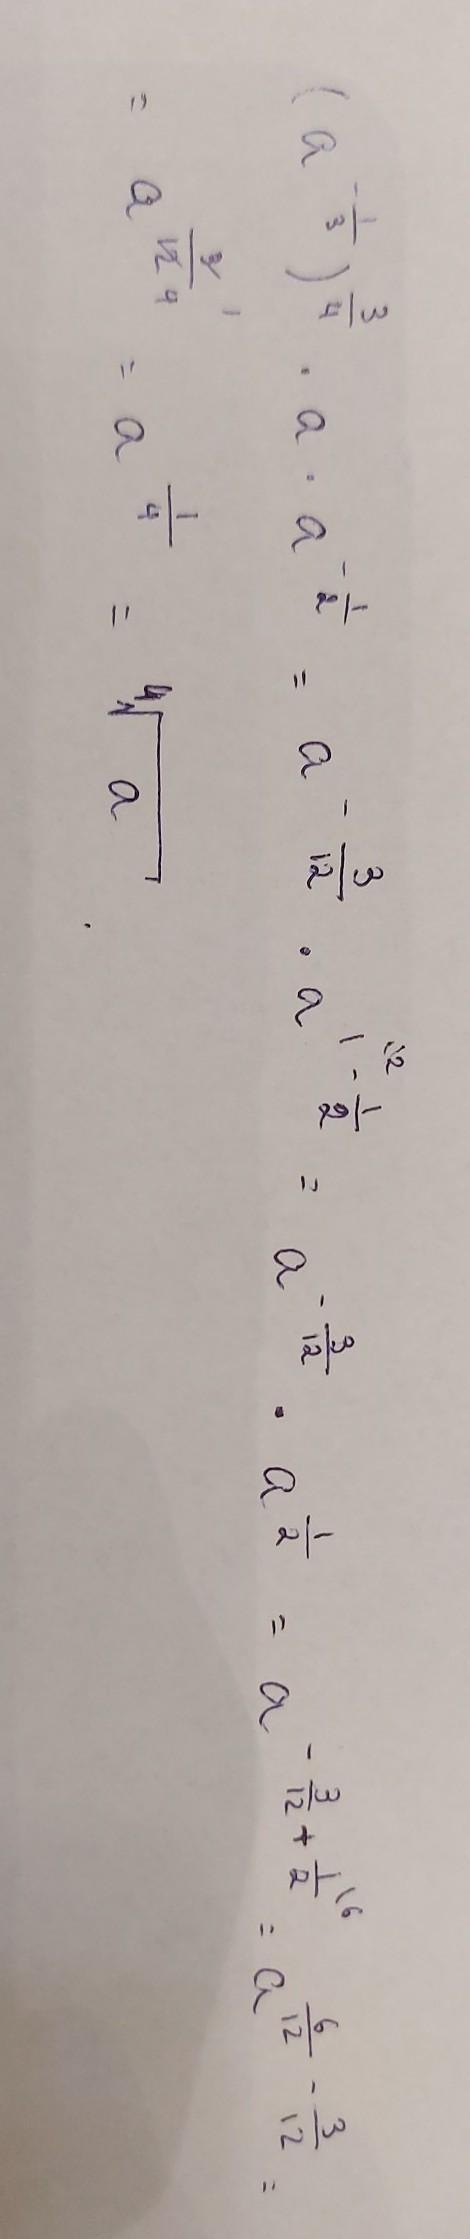 (a^{-\frac{1}{3}})^{\frac{3}{4}} · a · a^{-\frac{1}{2}} = a^{-\frac{3}{12}} · a^{1^{\backslash 2} - \frac{1}{2}} = a^{-\frac{3}{12}} · a^{\frac{1}{2}} = a^{-\frac{3}{12} + \frac{1}{2}^{\backslash 6}} = a^{\frac{6}{12} - \frac{3}{12}} =
= a^{\frac{3^{1}}{12_{4}}} = a^{\frac{1}{4}} = \sqrt[4]{a}.